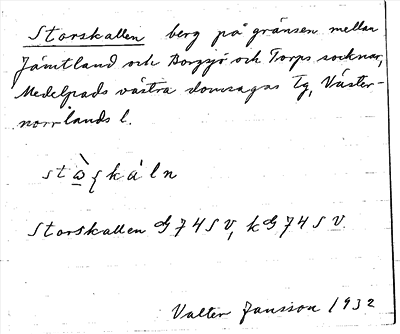 Storskallen berg på gränsen mellan
Jämtland och Borgsjö och Torps socknar,
Medelpads västra domsagas tg, Väster-
norrlands l.
Storskallen G 74 S V, kG 74 S V.
Valter Jansson 1932